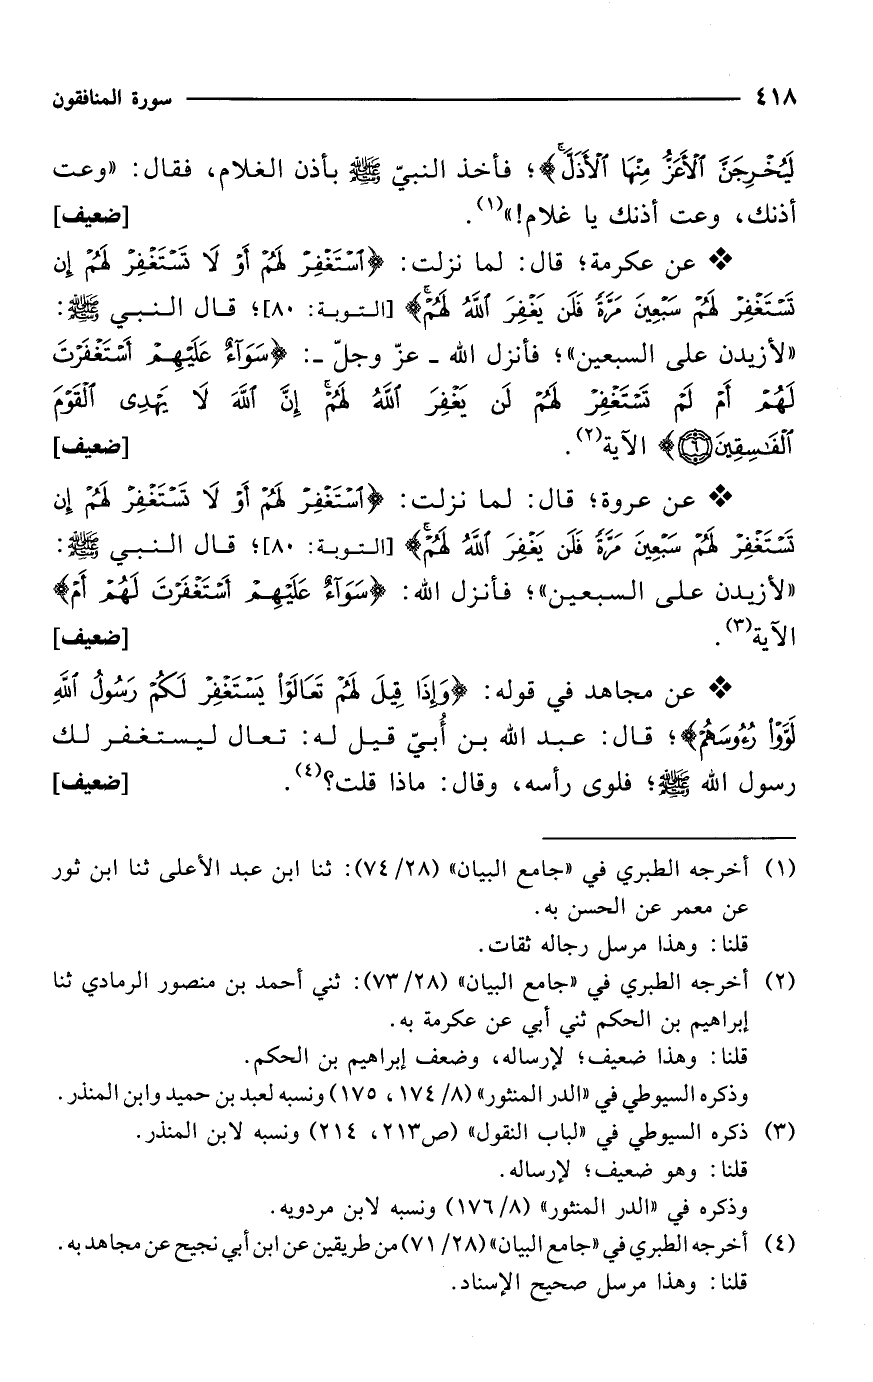 ٤١٨ سورة المنافقون
لَيُخْرِجَنَّ ٱلْأَعَزُّ مِنْهَا ٱلْأَذَلَّۚ﴾؛ فأخذ النبيّ ﷺ بأذن الغلام، فقال: «وعت
أذنك، وعت أذنك يا غلام!»(١). [ضعيف]
❖ عن عكرمة؛ قال: لما نزلت: ﴿ٱسْتَغْفِرْ لَهُمْ أَوْ لَا تَسْتَغْفِرْ لَهُمْ إِن
تَسْتَغْفِرْ لَهُمْ سَبْعِينَ مَرَّةً فَلَن يَغْفِرَ ٱللَّهُ لَهُمْۚ﴾ [التوبة: ٨٠]؛ قال النبي ﷺ:
«لأزيدن على السبعين»؛ فأنزل الله ـ عزّ وجلّ ـ: ﴿سَوَآءٌ عَلَيْهِمْ أَسْتَغْفَرْتَ
لَهُمْ أَمْ لَمْ تَسْتَغْفِرْ لَهُمْ لَن يَغْفِرَ ٱللَّهُ لَهُمْۚ إِنَّ ٱللَّهَ لَا يَهْدِى ٱلْقَوْمَ
ٱلْفَٰسِقِينَ ٦﴾ الآية(٢). [ضعيف]
❖ عن عروة؛ قال: لما نزلت: ﴿ٱسْتَغْفِرْ لَهُمْ أَوْ لَا تَسْتَغْفِرْ لَهُمْ إِن
تَسْتَغْفِرْ لَهُمْ سَبْعِينَ مَرَّةً فَلَن يَغْفِرَ ٱللَّهُ لَهُمْۚ﴾ [التوبة: ٨٠]؛ قال النبي ﷺ:
«لأزيدن على السبعين»؛ فأنزل الله: ﴿سَوَآءٌ عَلَيْهِمْ أَسْتَغْفَرْتَ لَهُمْ أَمْ﴾
الآية(٣). [ضعيف]
❖ عن مجاهد في قوله: ﴿وَإِذَا قِيلَ لَهُمْ تَعَالَوْا۟ يَسْتَغْفِرْ لَكُمْ رَسُولُ ٱللَّهِ
لَوَّوْا۟ رُءُوسَهُمْ﴾؛ قال: عبد الله بن أُبيّ قيل له: تعال ليستغفر لك
رسول الله ﷺ؛ فلوى رأسه، وقال: ماذا قلت؟(٤). [ضعيف]
(١) أخرجه الطبري في «جامع البيان» (٢٨/ ٧٤): ثنا ابن عبد الأعلى ثنا ابن ثور
عن معمر عن الحسن به.
قلنا: وهذا مرسل رجاله ثقات.
(٢) أخرجه الطبري في «جامع البيان» (٢٨/ ٧٣): ثني أحمد بن منصور الرمادي ثنا
إبراهيم بن الحكم ثني أبي عن عكرمة به.
قلنا: وهذا ضعيف؛ لإرساله، وضعف إبراهيم بن الحكم.
وذكره السيوطي في «الدر المنثور» (٨/ ١٧٤، ١٧٥) ونسبه لعبد بن حميد وابن المنذر.
(٣) ذكره السيوطي في «لباب النقول» (ص٢١٣، ٢١٤) ونسبه لابن المنذر.
قلنا: وهو ضعيف؛ لإرساله.
وذكره في «الدر المنثور» (٨/ ١٧٦) ونسبه لابن مردويه.
(٤) أخرجه الطبري في «جامع البيان» (٢٨/ ٧١) من طريقين عن ابن أبي نجيح عن مجاهد به.
قلنا: وهذا مرسل صحيح الإسناد.